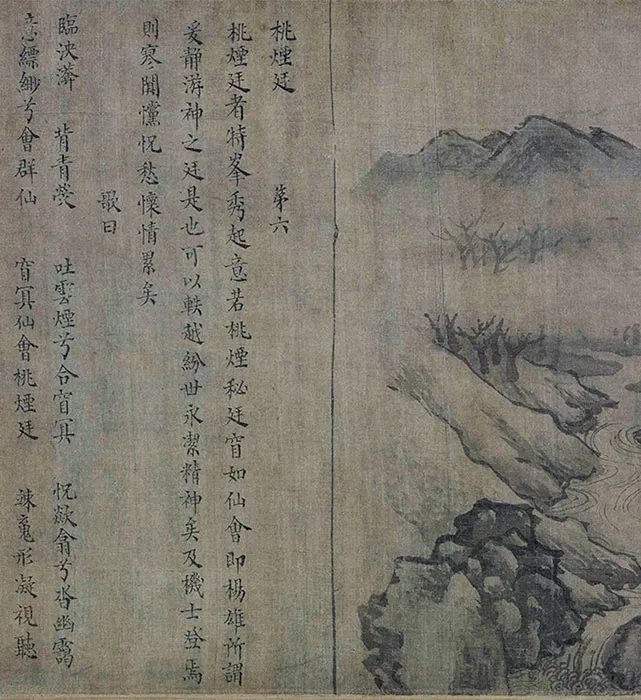 桃煙廷 第六
桃煙廷者特峯秀起意若桃煙秘廷窅如仙會即楊雄所謂
爰靜游神之廷是也可以軼越紛世永潔精神矣及機士登焉
則寥闃戃怳愁懷情累矣
歌曰
臨泱漭 背青熒 吐雲煙兮合窅冥 怳欻翕兮沓幽靄
意縹緲兮會群仙 窅冥仙會桃煙廷 竦魂形凝視聽